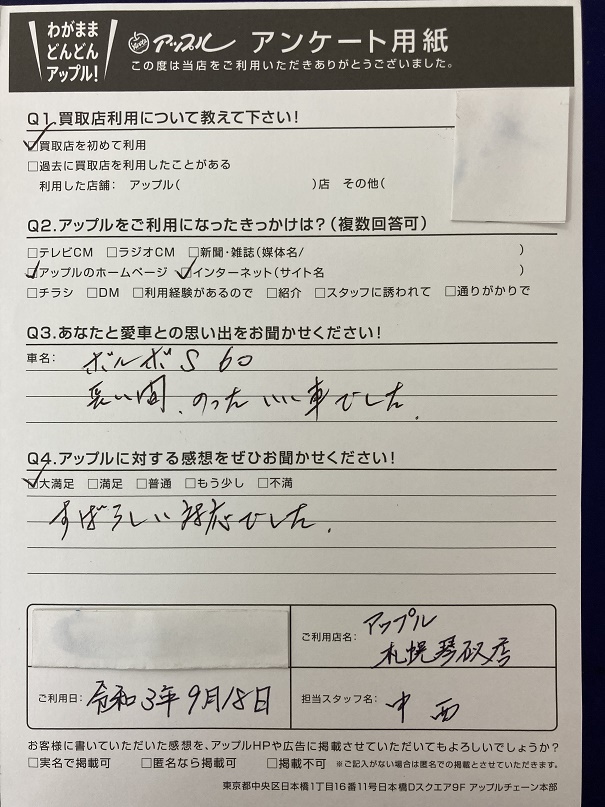 わがまま
どんどん
アップル!
アップル アンケート用紙
この度は当店をご利用いただきありがとうございました。
Q1.買取店利用について教えて下さい!
☑買取店を初めて利用
□過去に買取店を利用したことがある
利用した店舗: アップル( )店 その他(
Q2.アップルをご利用になったきっかけは?(複数回答可)
□テレビCM □ラジオCM □新聞・雑誌(媒体名/ )
☑アップルのホームページ ☑インターネット(サイト名 )
□チラシ □DM □利用経験があるので □紹介 □スタッフに誘われて □通りがかりで
Q3.あなたと愛車との思い出をお聞かせください!
車名: ボルボS60
長い間、のったいい車でした.
Q4.アップルに対する感想をぜひお聞かせください!
☑大満足 □満足 □普通 □もう少し □不満
すばらしい対応でした.
ご利用店名: アップル
札幌琴似店
ご利用日: 令和3年9月18日
担当スタッフ名: 中西
お客様に書いていただいた感想を、アップルHPや広告に掲載させていただいてもよろしいでしょうか?
□実名で掲載可 □匿名なら掲載可 □掲載不可 ※ご記入がない場合は匿名での掲載とさせていただきます。
東京都中央区日本橋1丁目16番11号日本橋Dスクエア9F アップルチェーン本部